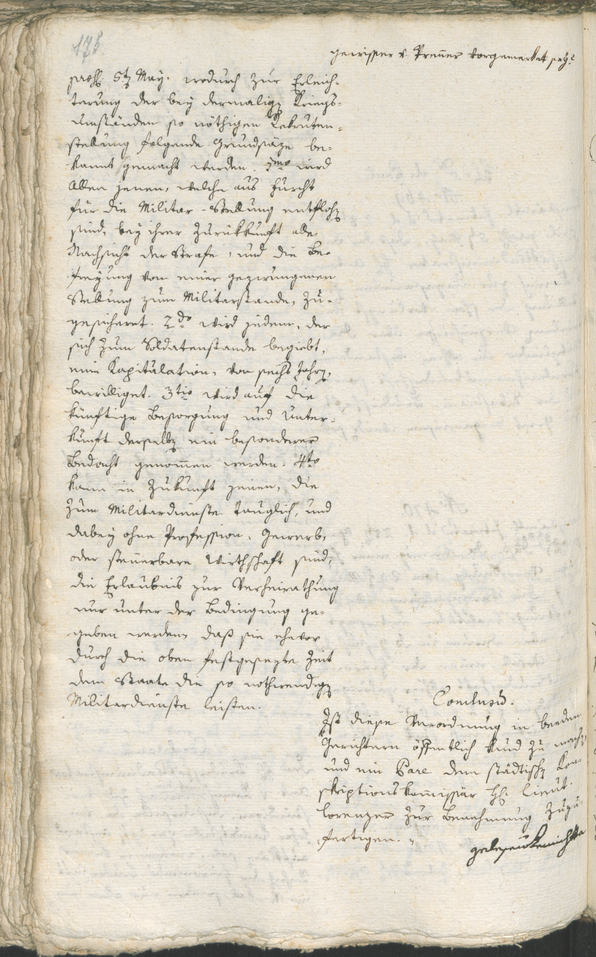 175.
praes. 5t May. wodurch zur Erleich-
terung der bey dermalig Kriegs-
Umständen so nöthigen Rekruten-
stellung folgende Grundsäze be-
kannt gemacht werden. 1mo wird
allen jenen, welche aus Furcht
für die Militar-Stellung entfloh
sind, bey ihrer Zurückkunft alle
Nachsicht der Strafe, und die Be-
freyung von einer gezwungenen
Stellung zum Militarstande, zu-
gesicheret. 2do wird jedem, der
sich zum Soldatenstande begiebt,
eine Kapitulation von sechs Jahr,
bewilliget. 3tio wird auf die
künftige Besorgung und Unter-
kunft derselb ein besonderer
Bedacht genommen werden. 4to
kann in Zukunft jenen, die
zum Militardienste tauglich, und
dabey ohne Profession, Gewerb,
oder steuerbare Wirthschaft sind,
die Erlaubnis zur Verheirathung
nur unter der Bedingung ge-
geben werden, daß sie ehevor
durch die oben festgesezte Zeit
dem Staate die so nothwendig
Militardienste leisten.
Conclusum.
Ist diese Verordnung in beeden
Gerichtern öffentlich kund zu mach
und ein Pare dem städtisch Kon-
skriptionskommissär H. Lieut.
Lorenzer zur Benehmung zuzu-
fertigen.